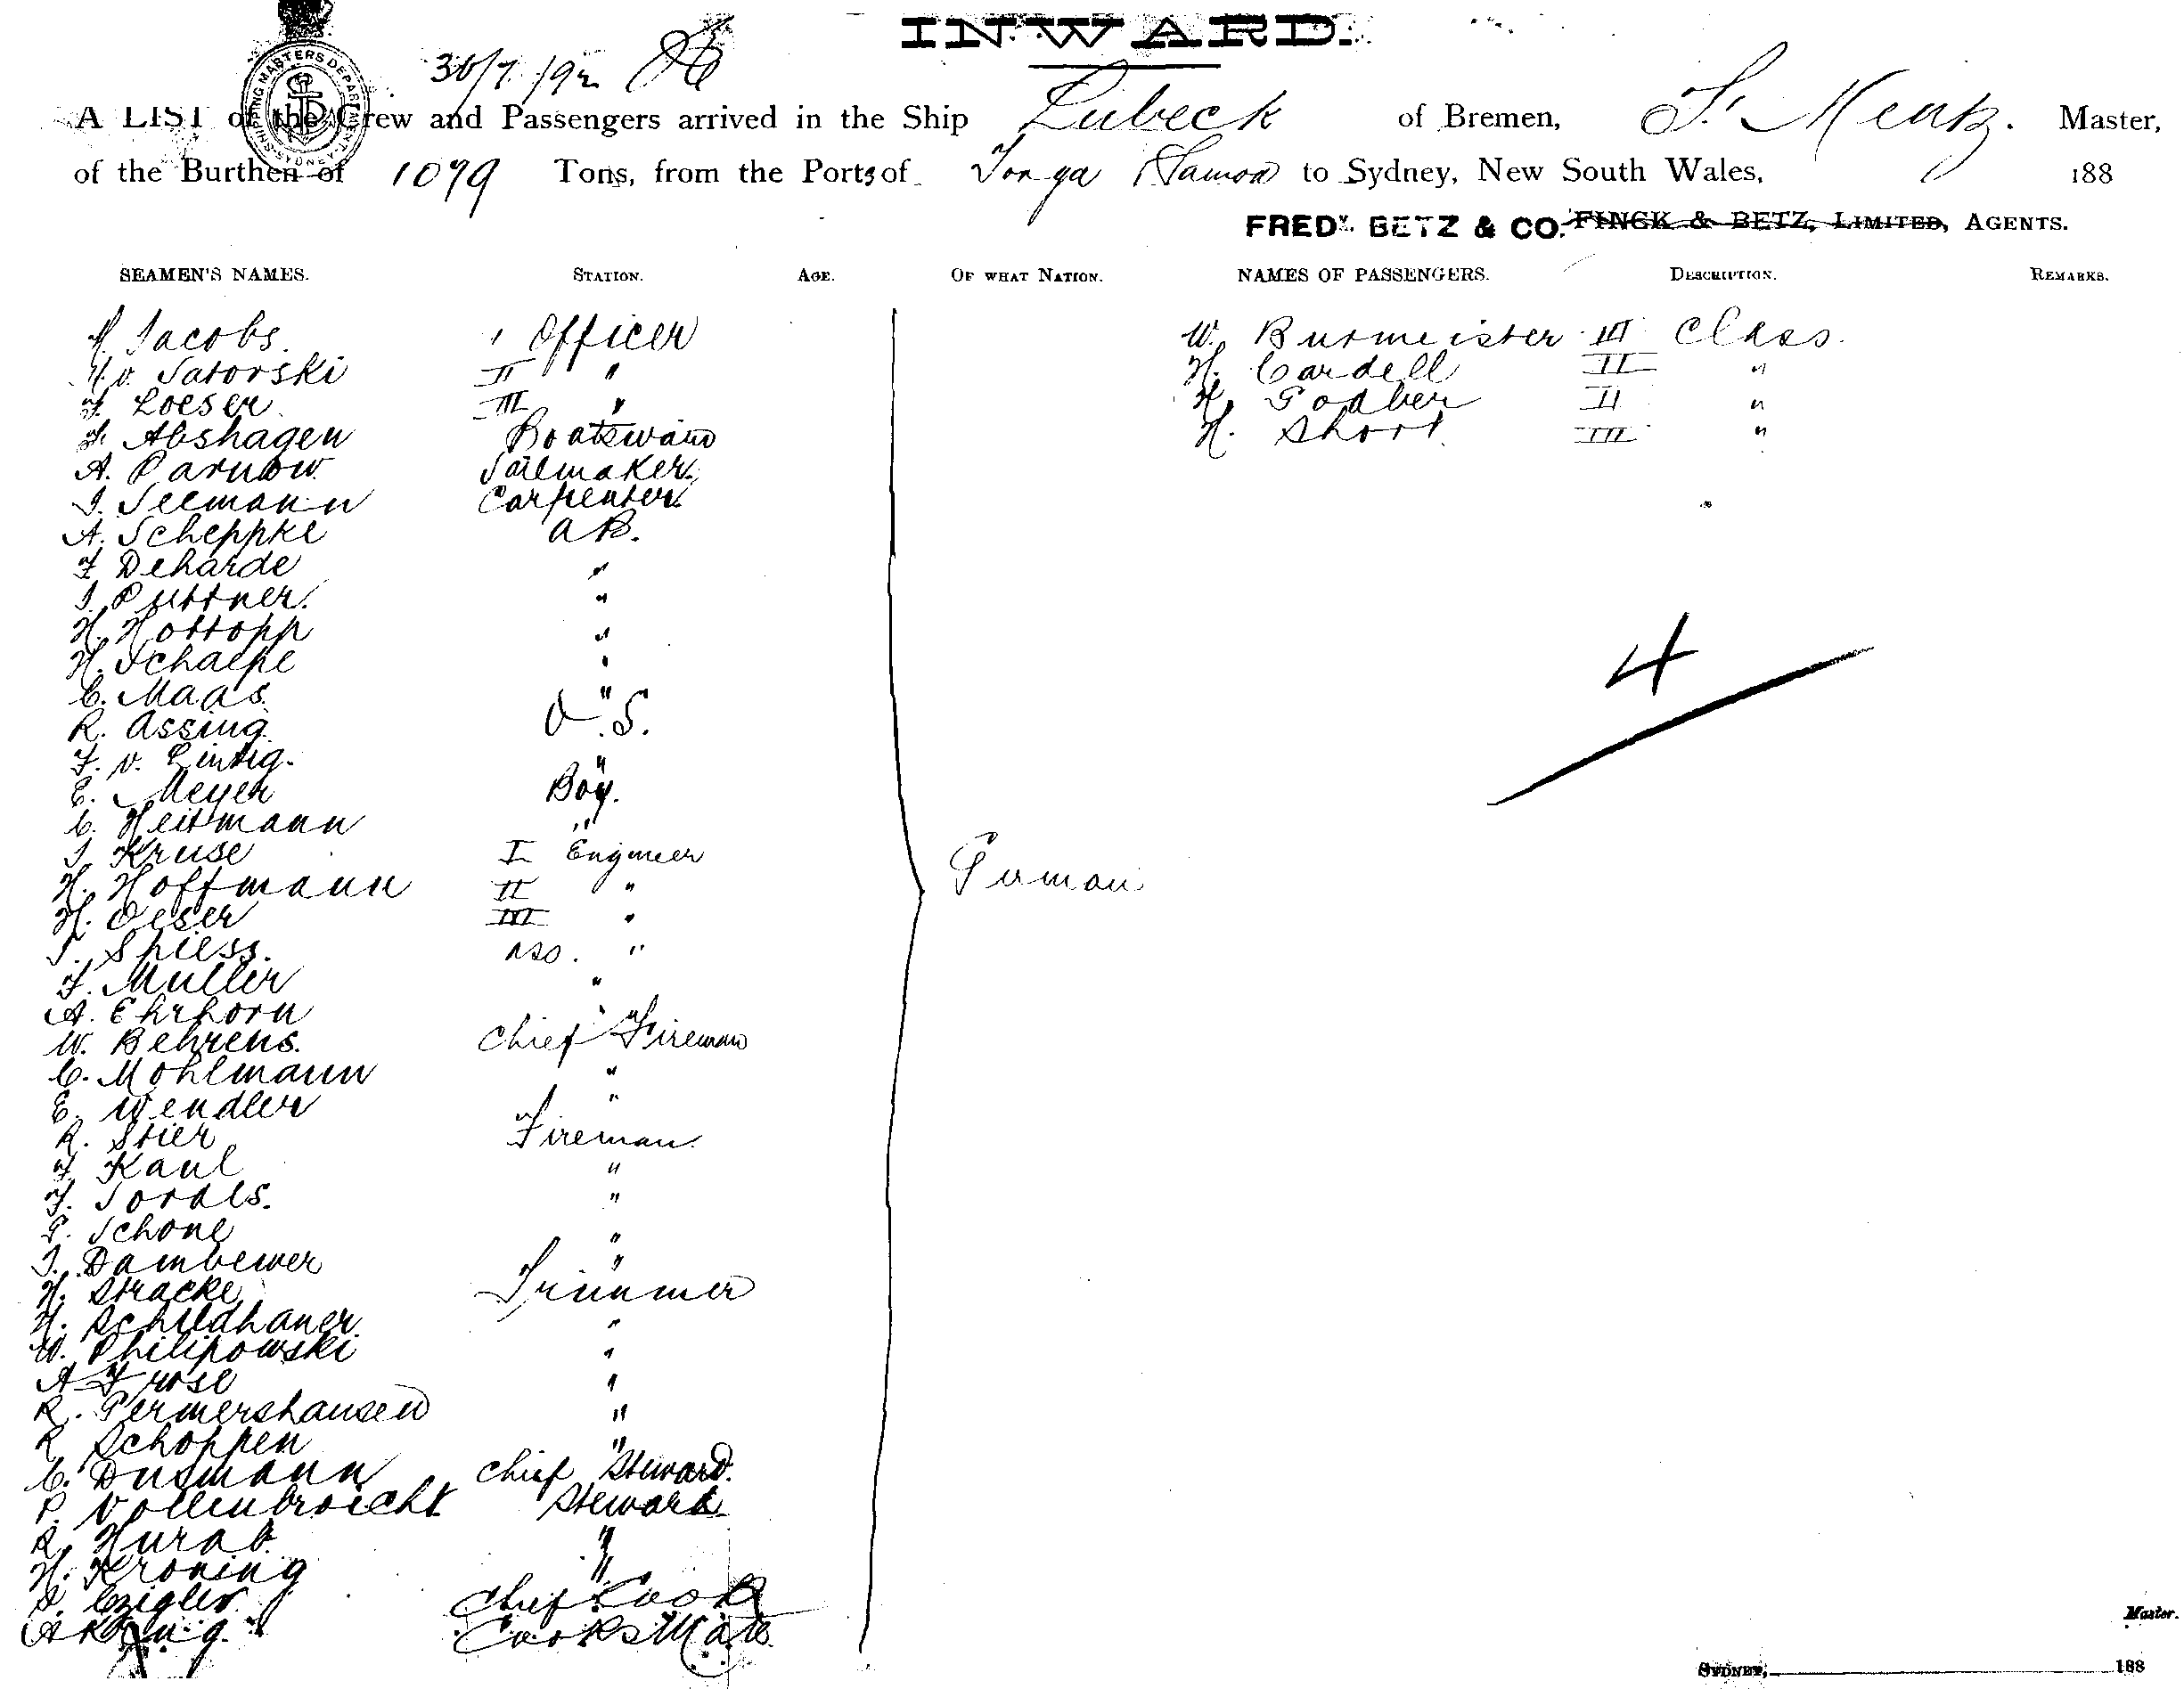 INWARD.
30/7/92
SHIPPING MASTERS DEPARTMENT SYDNEY
A LIST of the Crew and Passengers arrived in the Ship Lübeck of Bremen, Master,
of the Burthen of 1099 Tons, from the Ports of Tonga Samoa to Sydney, New South Wales, 188
FREDK. BETZ & CO. FINCK & BETZ, LIMITED, AGENTS.
SEAMEN'S NAMES. STATION. AGE. OF WHAT NATION. NAMES OF PASSENGERS. DESCRIPTION. REMARKS.
Jacobs. 1 Officer W. Burmeister III Class.
H. v. Satorski II " H. Cardell II "
F. Loeser III " H. Godber II "
F. Abshagen Boatswain H. Short III "
A. Parnow Sailmaker
I. Seemann Carpenter
A. Scheppke A B.
F Deharde "
I. Puttner "
H. Hottopp "
H. Schaepe "
C. Maas "
R. Assing O. S.
F. v. Lintig "
E. Meyer Boy.
C. Heitmann "
I. Kruse I Engineer
H. Hoffmann II " German
H. Oeser III "
I. Spiess. ass. "
F. Muller "
A. Ehrhorn "
W. Behrens. Chief Fireman
C. Mohlmann "
E. Wendler "
R. Stier Fireman
F Kaul "
F. Jordls. "
G. Schone "
I. Dambewer "
H. Stracke Trimmer
H. Schildhaner "
W. Philipowski "
A Frose "
R. Germershausen "
R Schoppen "
C. Dusmann Chief Steward.
P. Vollenbroicht Steward
R. Hurab "
H. Kroning "
Czigler Chief Cook
A Cooks Mate
4
Master.
SYDNEY, 188